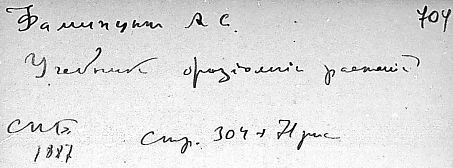 Фаминцын А С. 704
Учебник физіологіи растеній
СПб.
1887 Стр. 304 +